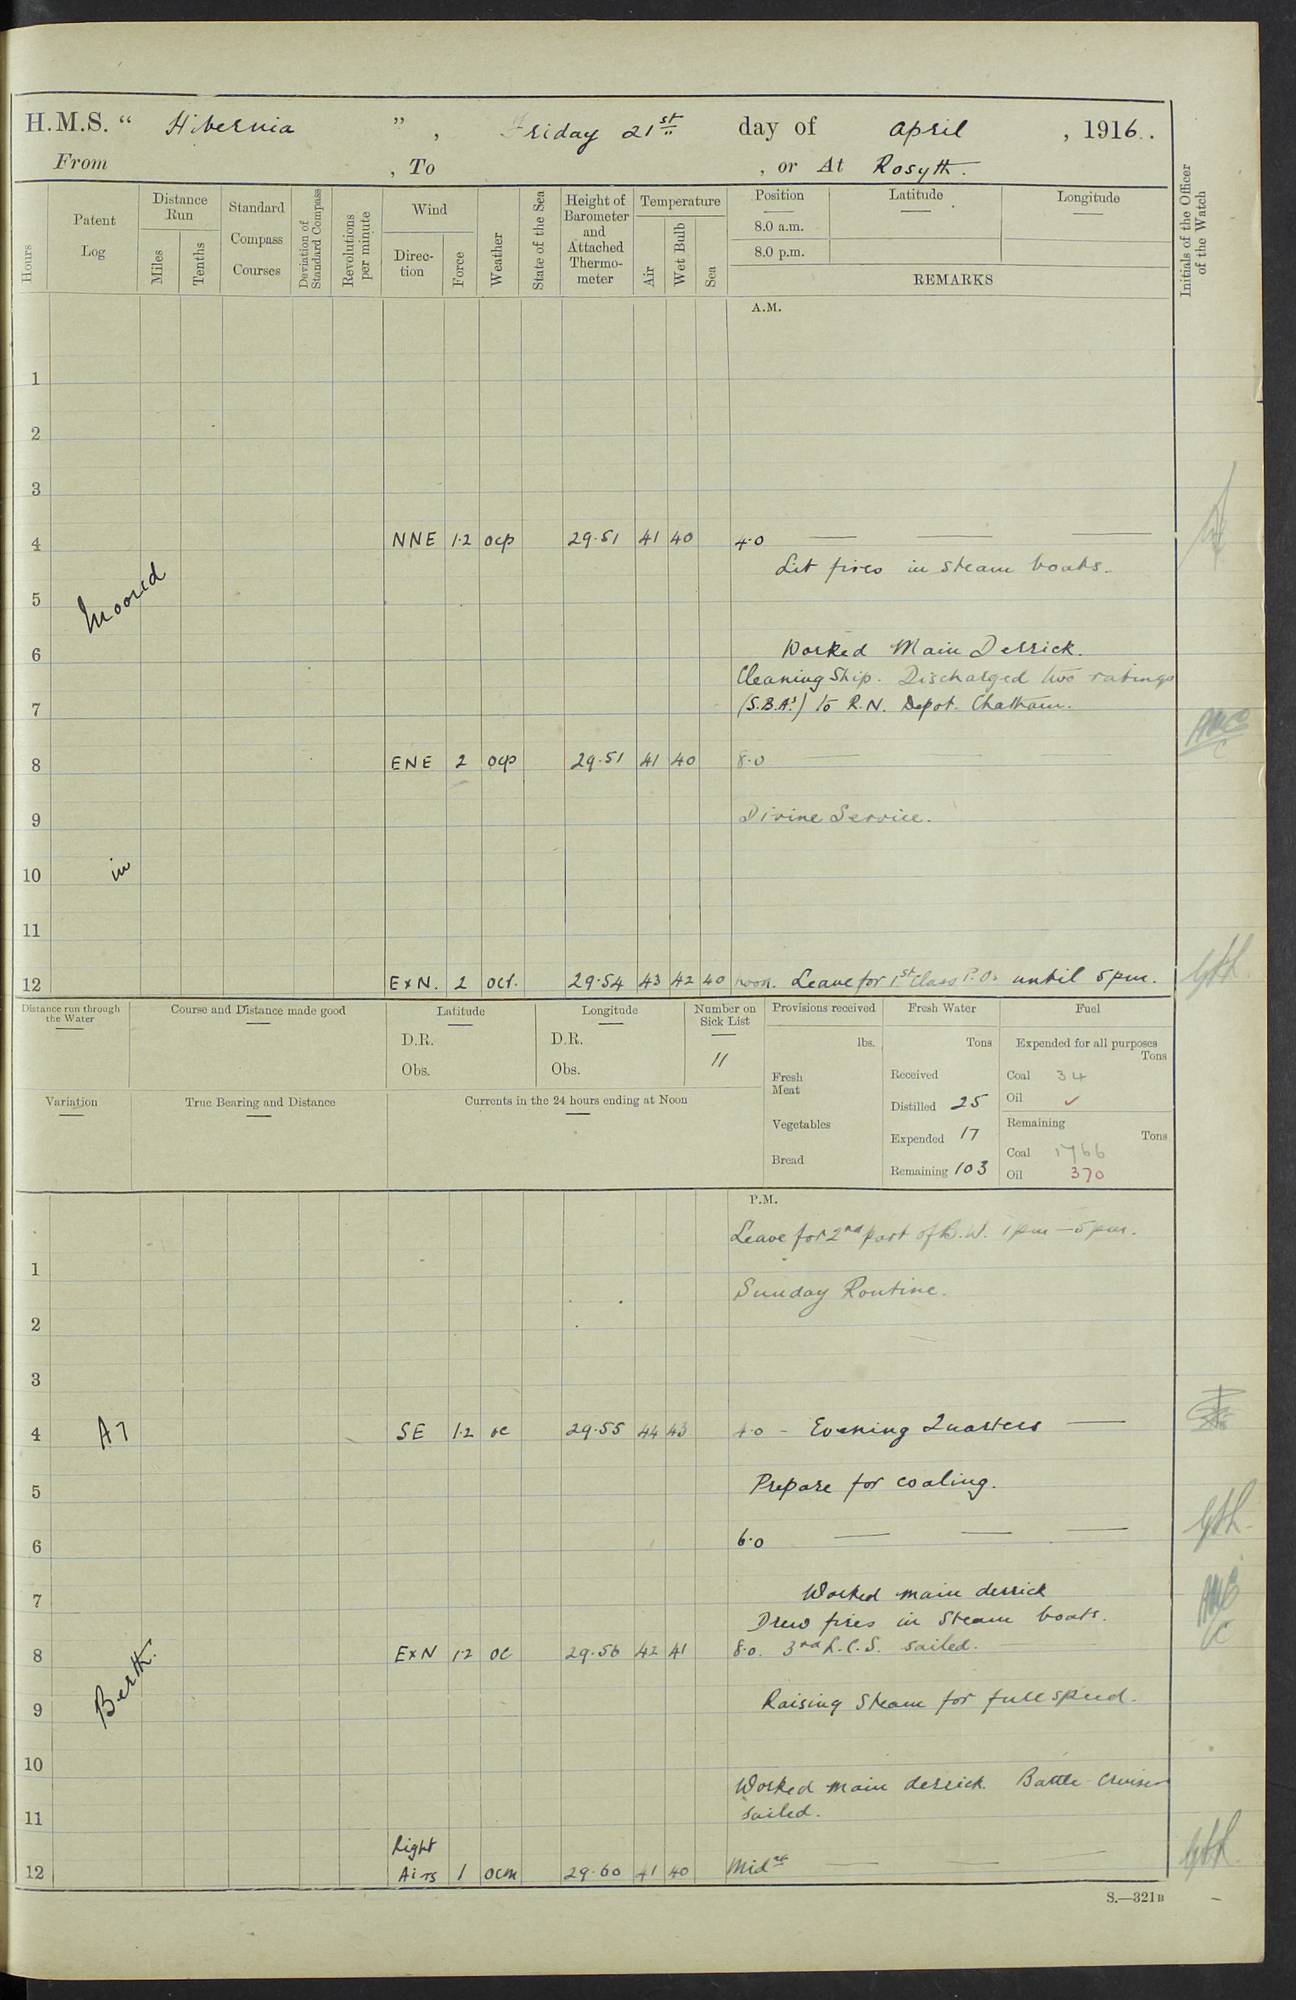 H.M.S. “ Hibernia ” , Friday 21st day of April , 1916.
From , To , or At Rosyth.
Hours
Patent Log
Distance Run
Miles
Tenths
Standard Compass Courses
Deviation of Standard Compass
Revolutions per minute
Wind
Direction
Force
Weather
State of the Sea
Height of Barometer and Attached Thermometer
Temperature
Air
Wet Bulb
Sea
Position
Latitude
Longitude
8.0 a.m.
8.0 p.m.
REMARKS
Initials of the Officer of the Watch
A.M.
1
2
3
4 NNE 1.2 ocp 29.51 41 40 4.0
Lit fires in steam boats.
5
Moored
6 Worked Main Derrick.
Cleaning Ship. Discharged two ratings
7 (S.B.As) to R.N. Depot. Chatham.
8 ENE 2 ocp 29.51 41 40 8.0
9 Divine Service.
10 in
11
12 ExN. 2 oct. 29.54 43 42 40 noon. Leave for 1st Class P.Os until 5pm.
Distance run through the Water
Course and Distance made good
Latitude
D.R.
Obs.
Longitude
D.R.
Obs.
Number on Sick List
11
Provisions received
lbs.
Fresh Meat
Vegetables
Bread
Fresh Water
Tons
Received
Distilled 25
Expended 17
Remaining 103
Fuel
Expended for all purposes
Tons
Coal 34
Oil ✓
Remaining
Tons
Coal 1766
Oil 370
Variation
True Bearing and Distance
Currents in the 24 hours ending at Noon
P.M.
Leave for 2nd part of B.W. 1pm — 5pm.
1
Sunday Routine.
2
3
4 A7 SE 1.2 oc 29.55 44 43 4.0 - Evening Quarters
5 Prepare for coaling.
6 6.0
7 Worked main derrick
Drew fires in Steam boats.
8 ExN 1.2 oc 29.56 42 41 8.0. 3rd L.C.S. sailed.
Berth.
9 Raising Steam for full speed.
10
Worked main derrick. Battle Cruisers
11 sailed.
Light
12 Airs 1 ocm 29.60 41 40 Midnt
S.—321B